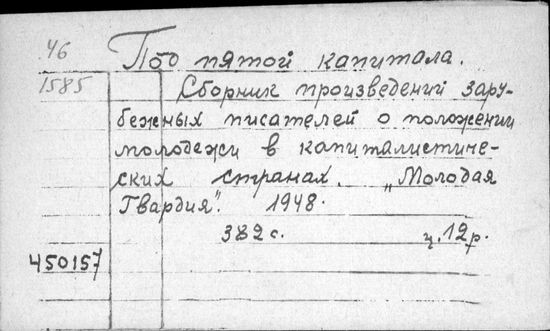 46
1585
Под пятой капитала.
Сборник произведений зару-
бежных писателей о положении
молодежи в капиталистиче-
ских странах. „Молодая
Гвардия". 1948.
382 с. ц. 12 р.
450157